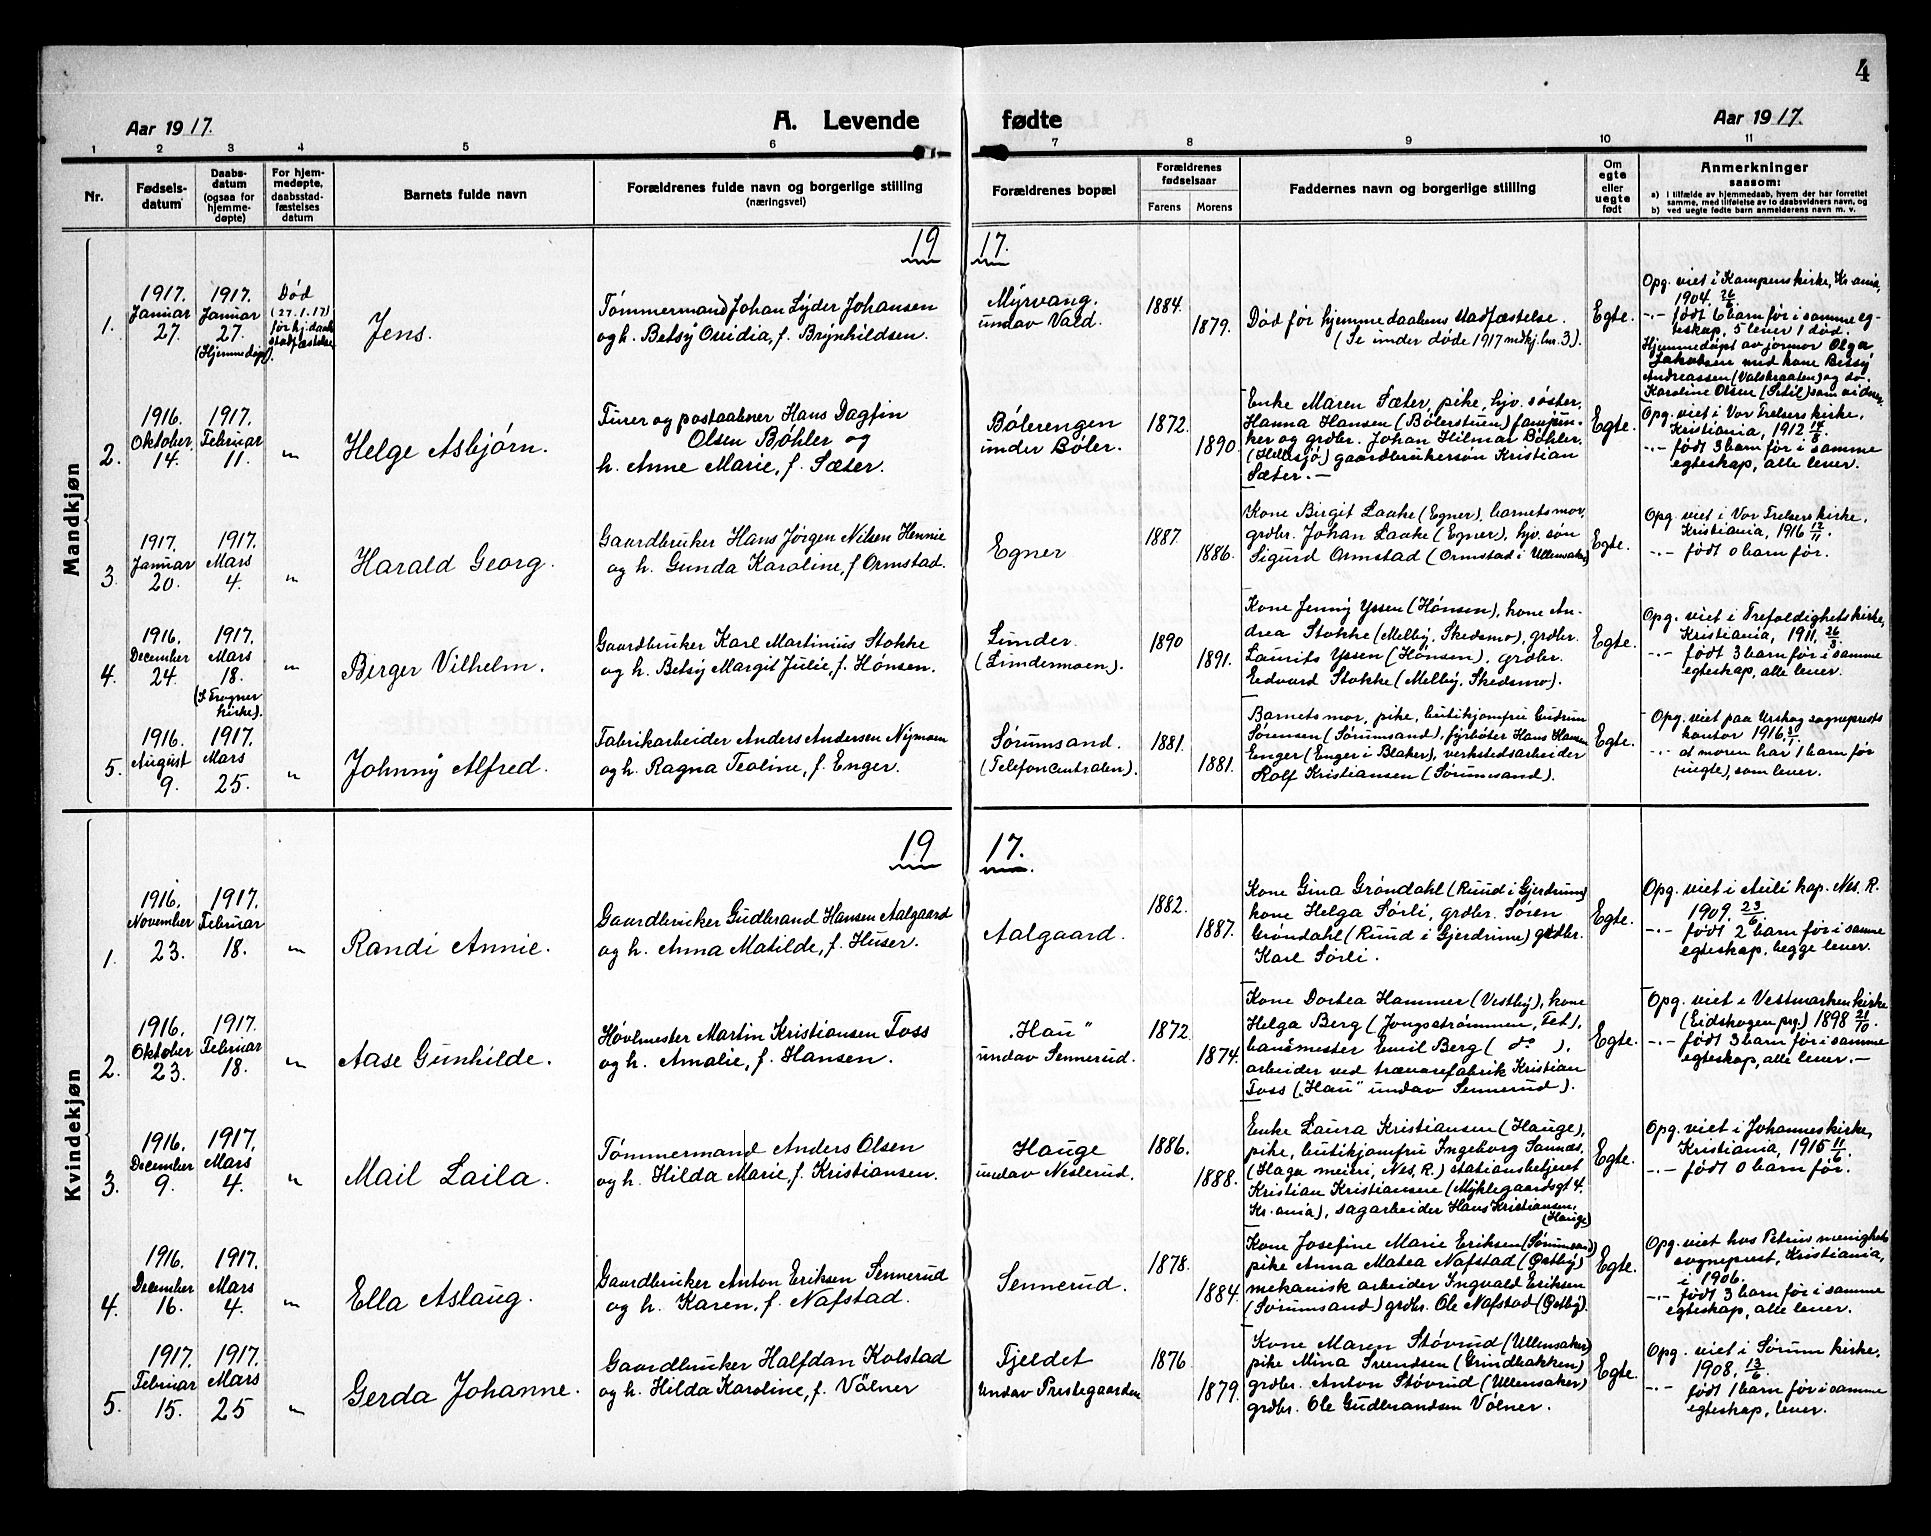 4
Aar 1917.
A. Levende fødte
Aar 1917.
1 2 3 4 5 6 7 8 9 10 11
Nr.
Fødsels-
datum
Daabs-
datum
(ogsaa for
hjemme-
døpte)
For hjem-
medøpte,
daabsstad-
fæstelses
datum
Barnets fulde navn
Forældrenes fulde navn og borgerlige stilling
(næringsvei)
Forældrenes bopæl
Forældrenes
fødselsaar
Farens Morens
Faddernes navn og borgerlige stilling
Om
egte
eller
uegte
født
Anmerkninger
saasom:
a) i tilfælde av hjemmedaab, hvem der har forrettet
samme, med tilføielse av to daabsvidners navn, og
b) ved uegte fødte barn anmelderens navn m. v.
Mandkjøn
19 17.
1.
1917.
Januar
27.
1917.
Januar
27.
(Hjemmedøpt).
Død
(27.1.17)
før hj.daabs
stadfæstelse
Jens.
Tømmermand Johan Lyder Johansen
og h. Betsy Ovidia, f. Brynhildsen.
Myrvang.
undav Vald.
1884.
1879.
Død før hjemmedaabens stadfæstelse.
(Se under døde 1917 mdkj. lnr. 3).
Egte.
Opg. viet i Kampens kirke, Kr.ania,
1904. 26/6.
-"- født 6 barn før i samme eg-
teskap, 5 lever 1 død.
Hjemmedøpt av jormor Olga
Jakobsen med kone Betsy
Andreassen (Valsbraaten) og do.
Karoline Olsen som vidner.
2.
1916.
Oktober
14.
1917.
Februar
11.
"
Helge Asbjørn.
Furer og postaabner Hans Dagfin
Olsen Bøhler og
h. Anne Marie, f. Sæter.
Bølerengen
under Bøler.
1872.
1890.
Enke Maren Sæter, pike, hjv. søster,
Hanna Hansen (Bølerstuen)
og grdbr. Johan Hilmar Bøhler.
(Hellesjø) gaardbrukersøn Kristian
Sæter. —
Egte.
Opg. viet i Vor Frelsers kirke,
Kristiania, 1912 14/8.
-"- født 3 barn før i samme
egteskap, alle lever.
3.
1917.
Januar
20.
1917.
Mars
4.
"
Harald Georg.
Gaardbruker Hans Jørgen Nilsen Hennie
og h. Gunda Karoline, f. Ormstad.
Egner
1887.
1886.
Kone Birgit Laake (Egner), barnets mor,
grdbr. Johan Laake (Egner), hjv. søn
Sigurd Ormstad (Ormstad i Ullensaker)
Egte.
Opg. viet i Vor Frelsers kirke,
Kristiania, 1916 12/11
-"- født 0 barn før.
4.
1916.
December
24.
1917.
Mars
18.
(I Frogner
kirke).
"
Berger Vilhelm.
Gaardbruker Karl Martinius Stokke
og h. Betsy Margit Julie, f. Hønsen.
Linder.
(Lindermoen).
1890
1891.
Kone Jenny Yssen (Hønsen), kone An-
drea Stokke (Melby, Skedsmo), grdbr.
Laurits Yssen (Hønsen), grdbr.
Edvard Stokke (Melby, Skedsmo).
Egte.
Opg. viet i Trefoldighetskirke,
Kristiania, 1911. 26/3.
-"- født 3 barn før i samme
egteskap, alle lever.
5.
1916.
August
9.
1917.
Mars
25.
"
Johnny Alfred.
Fabrikarbeider Anders Andersen Nymoen
og h. Ragna Teoline, f. Enger.
Sørumsand.
(Telefoncentralen).
1881.
1881.
Barnets mor, pike, butikjomfru Gudrun
Sørensen (Sørumsand), fyrbøter Hans Hansen
Enger (Enger i Blaker), verkstedsarbeider
Rolf Kristiansen (Sørumsand).
Egte.
Opg. viet paa Urskog sogneprests
kontor 1916
-"- at moren har 1 barn før
(uegte), som lever.
Kvindekjøn
19 17.
1.
1916.
November
23.
1917.
Februar
18.
"
Randi Annie.
Gaardbruker Gudbrand Hansen Aalgaard
og h. Anna Matilde, f. Huser.
Aalgaard.
1882.
1887.
Kone Gina Grøndahl (Ruud i Gjerdrum)
kone Helga Sørli, grdbr. Søren
Grøndahl (Ruud i Gjerdrum) grdbr.
Karl Sørli.
Egte.
Opg. viet i Auli kap. Nes. R.
1909. 23/6.
-"- født 2 barn før i samme
egteskap, begge lever.
2.
1916.
Oktober
23.
1917.
Februar
18.
"
Aase Gunhilde.
Høvlmester Martin Kristiansen Foss
og h. Amalie, f. Hansen.
„Hau"
undav Sennerud.
1872.
1874.
Kone Dortea Hammer (Vestby), kone
Helga Berg (Jongsstrømmen, Fet),
lansemester Emil Berg ( do ).
arbeider ved trævarefabrik Kristian
Foss („Hau" undav Sennerud).
Egte.
Opg. viet i Vestmarken kirke
(Eidskogen prg.) 1898 21/10.
-"- født 3 barn før i samme
egteskap, alle lever. —
3.
1916.
December
9.
1917.
Mars
4.
"
Mail Laila.
Tømmermand Anders Olsen
og h. Hilda Marie, f. Kristiansen.
Hauge
undav Neslerud.
1886.
1888.
Enke Laura Kristiansen (Hauge),
pike, butikjomfru Ingeborg Sannæs,
(Haga meieri, Nes, R.) stationsbetjent
Kristian Kristiansen (Myklegaardsgt 4.
Kr.ania), sagarbeider Hans Kristiansen,
(Hauge)
Egte.
Opg. viet i Johannes kirke,
Kristiania, 1915 11/6.
-"- født 0 barn før.
4.
1916.
December
16.
1917.
Mars
4.
"
Ella Aslaug.
Gaardbruker Anton Eriksen Sennerud
og h. Karen, f. Nafstad.
Sennerud.
1878.
1884.
Kone Josefine Marie Eriksen (Sørumsand)
pike Anna Matea Nafstad (Østby)
mekanisk arbeider Ingvald Eriksen
(Sørumsand) grdbr. Ole Nafstad (Østby).
Egte.
Opg. viet hos Petrus menighets
sogneprest, Kristiania,
i 1906.
-"- født 3 barn før i samme
egteskap, alle lever.
5.
1917.
Februar
15.
1917.
Mars
25
"
Gerda Johanne.
Gaardbruker Halfdan Kolstad
og h. Hilda Karoline, f. Vølner
Fjeldet
undav Prestegaarden
1876
1879.
Kone Maren Støvrud (Ullensaker)
pike Mina Svendsen (Grindbakken)
grdbr. Anton Støvrud (Ullensaker)
grdbr. Ole Gudbrandsen Vølner.
Egte.
Opg. viet i Sørum kirke,
1908. 13/6.
-"- født 1 barn før i samme
egteskap, lever.